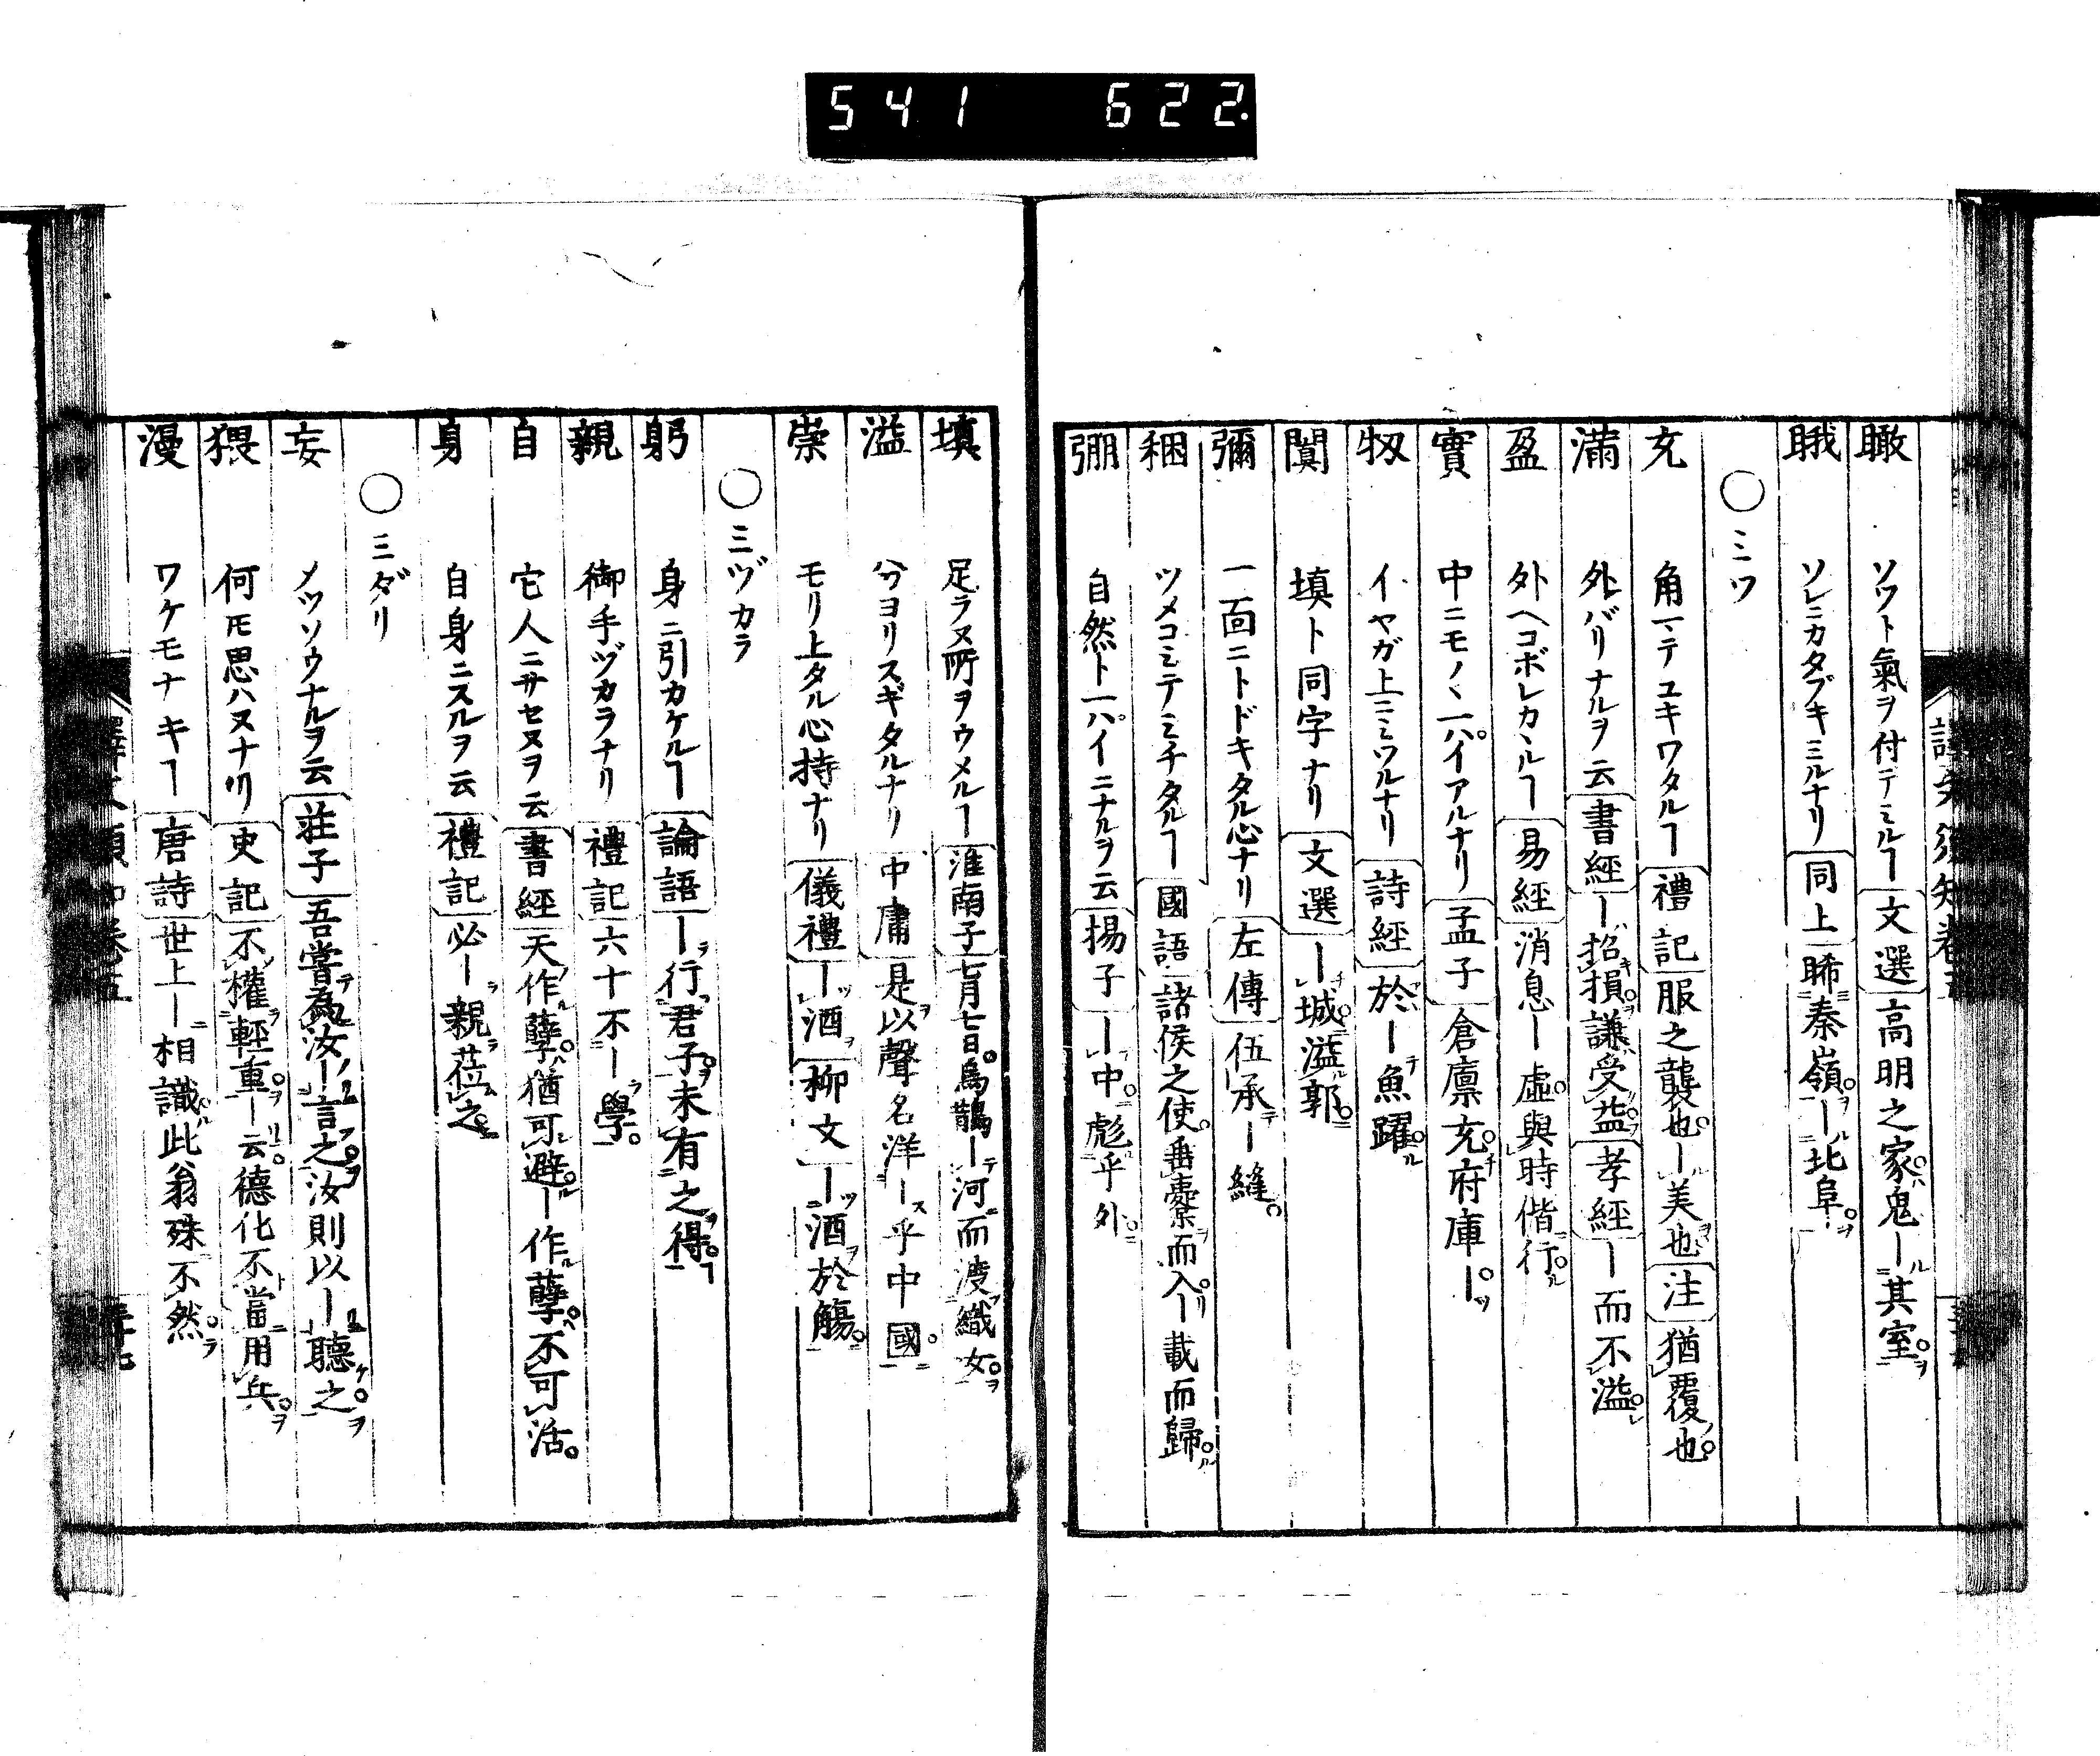 541 622.
瞰 ソツト氣ヲ付テミルヿ 文選 高明之家鬼ー其室
睋 ソレニカタブキミルナリ 同上 睎秦嶺ー北阜
○ ミツ
充 角マテユキワタルヿ 禮記 服之襲也ー美也 注 猶覆也
滿 外バリナルヲ云 書經 ー招損謙受益 孝經 ー而不溢
盈 外ヘコボレカヽルヿ 易經 消息ー虛與時偕行
實 中ニモノヽ一パイアルナリ 孟子 倉廩充府庫ー
牣 イヤガ上ニミツルナリ 詩經 於ー魚躍
闐 填ト同字ナリ 文選 ー城溢郭
彌 一面ニトドキタル心ナリ 左傳 伍承ー縫
稇 ツメコミテミチタルヿ 國語 諸侯之使垂橐而入ー載而歸
弸 自然ト一パイニナルヲ云 揚子 ー中彪乎外
填 足ラヌ所ヲウメルヿ 淮南子 七月七日烏鵲ー河而渡織女
溢 分ヨリスギタルナリ 中庸 是以聲名洋ー乎中國
崇 モリ上タル心持ナリ 儀禮 ー酒 柳文 ー酒於觴
○ ミヅカラ
躬 身ニ引カケルヿ 論語 ー行君子未有之得
親 御手ヅカラナリ 禮記 六十不ー學
自 它人ニサセヌヲ云 書經 天作孽猶可避ー作孽不可活
身 自身ニスルヲ云 禮記 必ー親莅之
○ ミダリ
妄 メツソウナルヲ云 莊子 吾嘗為汝ー言之汝則以ー聽之
猥 何モ思ハヌナリ 史記 不權輕重ー云德化不當用兵
漫 ワケモナキヿ 唐詩 世上ー相識此翁殊不然